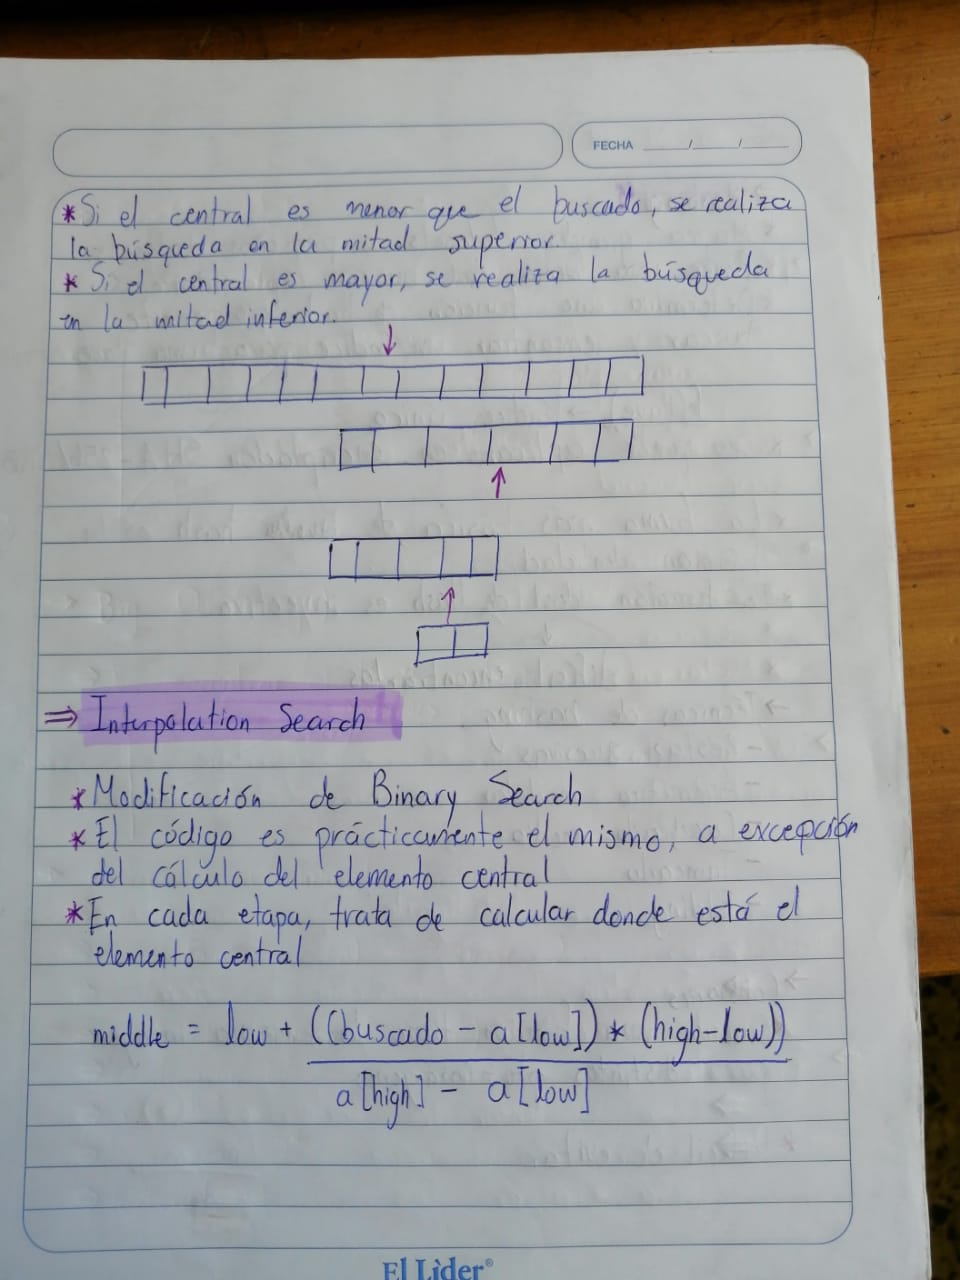 FECHA ___/___/___
* Si el central es menor que el buscado, se realiza
la búsqueda en la mitad superior.
* Si el central es mayor, se realiza la búsqueda
en la mitad inferior.
⇒ Interpolation Search
* Modificación de Binary Search
* El código es prácticamente el mismo, a excepción
del cálculo del elemento central
* En cada etapa, trata de calcular donde está el
elemento central
middle = low + ((buscado - a[low]) * (high-low))
a[high] - a[low]
El Lìder®